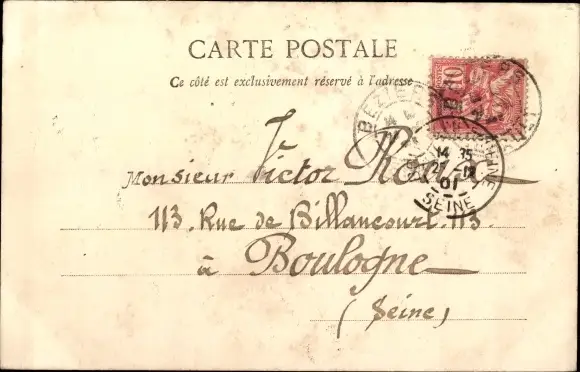 CARTE POSTALE
Ce côté est exclusivement réservé à l'adresse
10
BEZIERS
14 35
01
SEINE
Monsieur Victor
113. Rue de Billancourt. 113
à Boulogne
(Seine)